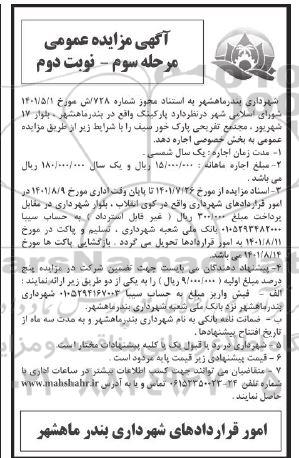 آگهی مزایده عمومی
مرحله سوم - نوبت دوم
شهرداری بندرماهشهر به استناد مجوز شماره ۷۲۸/ش مورخ ۱۴۰۱/۵/۱
شورای اسلامی شهر درنظردارد پارکینگ واقع در بندرماهشهر ، بلوار ۱۷
شهریور ، مجتمع تفریحی پارک خور سیف را با شرایط زیر از طریق مزایده
عمومی به بخش خصوصی اجاره دهد.
۱- مدت زمان اجاره : یک سال شمسی.
۲- مبلغ اجاره ماهانه : ۱۵/۰۰۰/۰۰۰ ریال و یک سال ۱۸۰/۰۰۰/۰۰۰ ریال
می باشد .
۳- اسناد مزایده از مورخ ۱۴۰۱/۷/۲۶ تا پایان وقت اداری مورخ ۱۴۰۱/۸/۹ از
امور قراردادهای شهرداری واقع در کوی انقلاب ، بلوار شهرداری در مقابل
پرداخت مبلغ ۳۰۰/۰۰۰ ریال ( غیر قابل استرداد ) به حساب سیبا
۰۱۰۵۲۹۳۴۸۲۰۰۰ بانک ملی شعبه شهرداری ، تسلیم و پاکت در مورخ
۱۴۰۱/۸/۱۱ به امور قراردادها تحویل می گردد . بازگشایی پاکت ها مورخ
۱۴۰۱/۸/۱۴ می باشد.
۴- پیشنهاد دهندگان می بایست جهت تضمین شرکت در مزایده پنج
درصد مبلغ اولیه ( ۹/۰۰۰/۰۰۰ ریال ) را به یکی از دو طریق زیر ارائه نمایند :
الف - فیش واریز مبلغ به حساب سیبا ۰۱۰۵۲۹۴۱۶۷۰۰۳ شهرداری
بندرماهشهر نزد بانک ملی شعبه شهرداری بندرماهشهر.
ب - ضمانت نامه بانکی به نام شهرداری بندرماهشهر و به مدت سه ماه از
تاریخ افتتاح پیشنهادها .
۵- شهرداری در رد یا قبول یک یا کلیه پیشنهادات مختار است .
۶- قیمت پیشنهادی زیر قیمت پایه مردود است .
۷- متقاضیان می توانند جهت کسب اطلاعات بیشتر در ساعات اداری با
شماره تلفن ۲۴-۰۶۱۵۲۳۵۰۰۲۳ تماس و یا به آدرس www.mahshahr.ir
حاصل نمایند .
امور قراردادهای شهرداری بندر ماهشهر